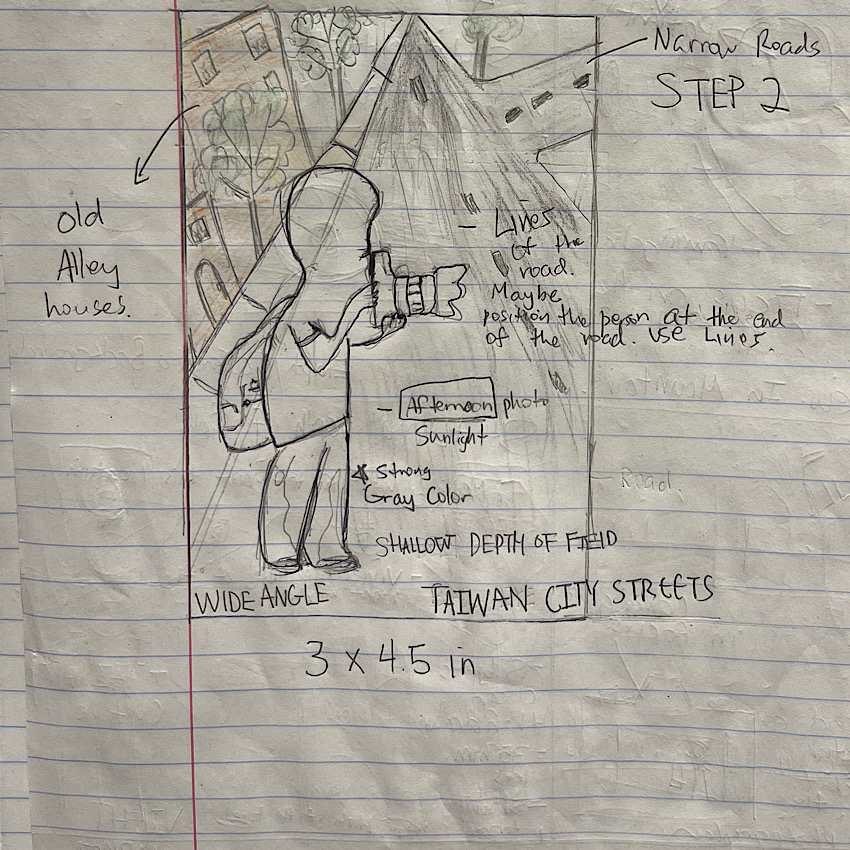 Narrow Roads
STEP 2
old
Alley
houses.
- Lines
of the
road.
Maybe
position the person at the end
of the road. USE LINES.
- Afternoon photo
Sunlight
Strong
Gray Color
Road.
SHALLOW DEPTH OF FIELD
WIDE ANGLE
TAIWAN CITY STREETS
3 x 4.5 in